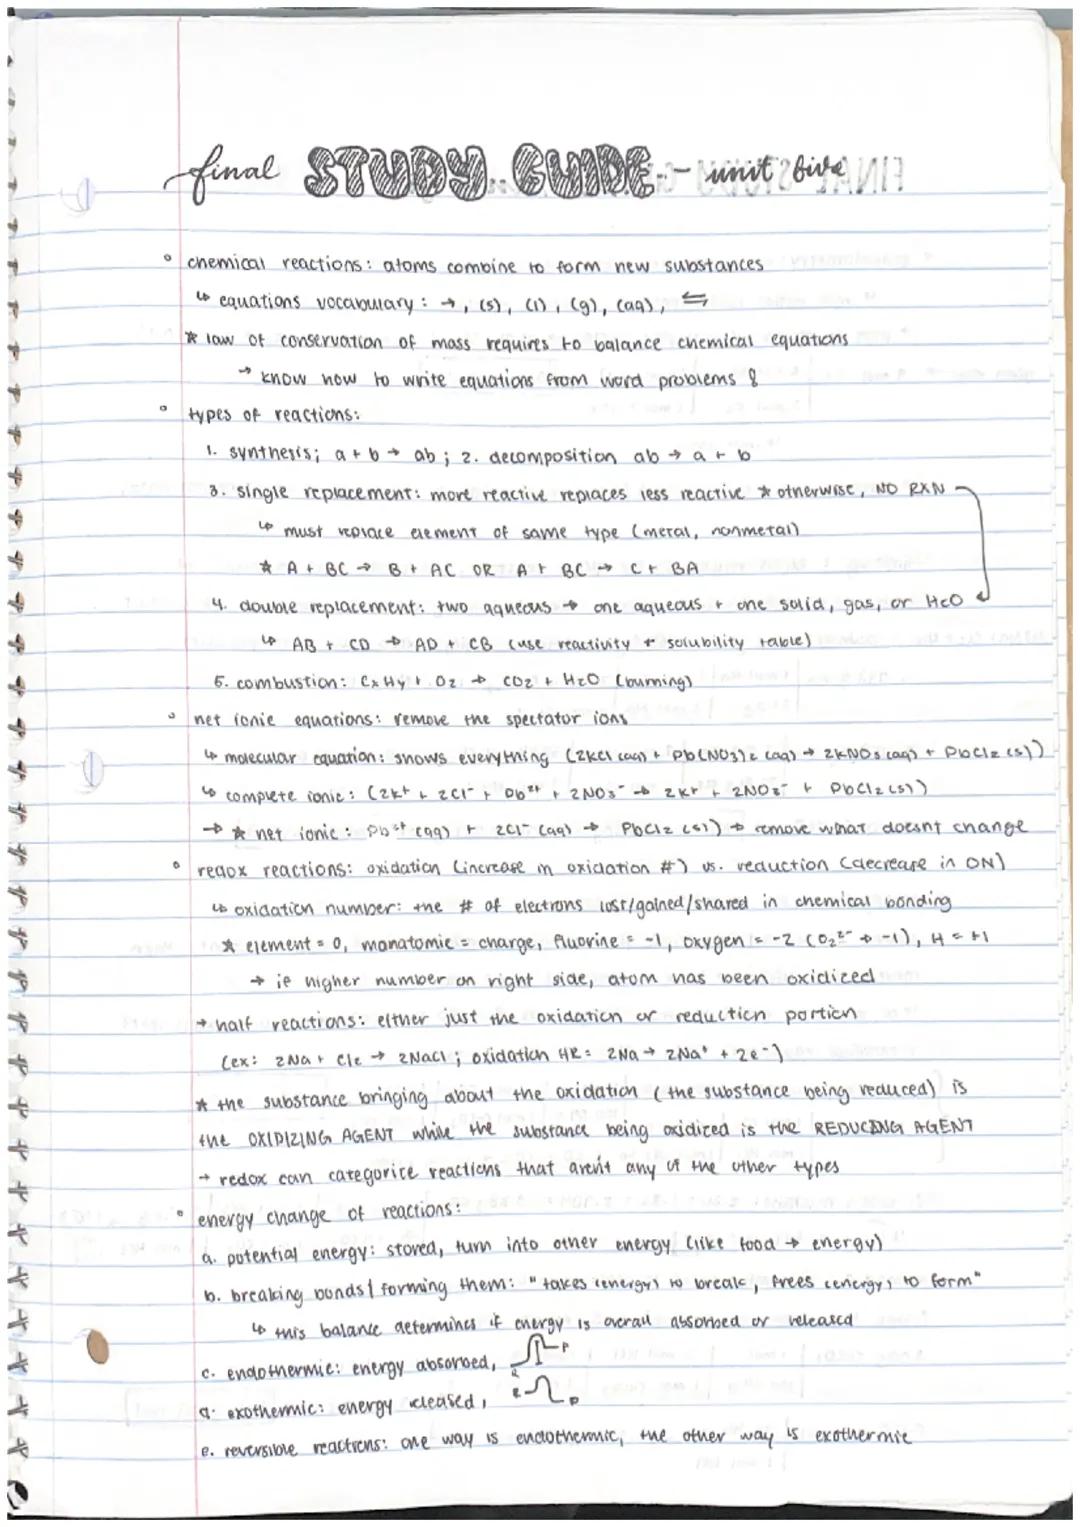 final STUDY GUIDE - unit five
° chemical reactions: atoms combine to form new substances
↳ equations vocabulary: →, (s), (l), (g), (aq), ⇆
* law of conservation of mass requires to balance chemical equations
→ know how to write equations from word problems &
° types of reactions:
1. synthesis; a + b → ab; 2. decomposition ab → a + b
3. single replacement: more reactive replaces less reactive * otherwise, NO RXN
↳ must replace element of same type (metal, nonmetal)
* A + BC → B + AC OR A + BC → C + BA
4. double replacement: two aqueous → one aqueous + one solid, gas, or H2O
↳ AB + CD → AD + CB (use reactivity + solubility table)
5. combustion: CxHy + O2 → CO2 + H2O (burning)
° net ionic equations: remove the spectator ions
↳ molecular equation: shows everything (2KCl (aq) + Pb(NO3)2 (aq) → 2KNO3 (aq) + PbCl2 (s))
↳ complete ionic: (2K+ + 2Cl- + Pb2+ + 2NO3- → 2K+ + 2NO3- + PbCl2 (s))
→ * net ionic: Pb2+ (aq) + 2Cl- (aq) → PbCl2 (s)) → remove what doesnt change
° redox reactions: oxidation (increase in oxidation #) vs. reduction (decrease in ON)
↳ oxidation number: the # of electrons lost/gained/shared in chemical bonding
* element = 0, monatomic = charge, fluorine = -1, oxygen = -2 (O2 2- → -1), H = +1
→ ie higher number on right side, atom has been oxidized
→ half reactions: either just the oxidation or reduction portion
(ex: 2Na + Cl2 → 2NaCl; oxidation HR: 2Na → 2Na+ + 2e-)
* the substance bringing about the oxidation (the substance being reduced) is
the OXIDIZING AGENT while the substance being oxidized is the REDUCING AGENT
→ redox can categorize reactions that aren't any of the other types
° energy change of reactions:
a. potential energy: stored, turn into other energy (like food → energy)
b. breaking bonds / forming them: "takes (energy) to break, frees (energy) to form"
↳ this balance determines if energy is overall absorbed or released
c. endothermic: energy absorbed, R P
d. exothermic: energy released, R P
e. reversible reactions: one way is endothermic, the other way is exothermic